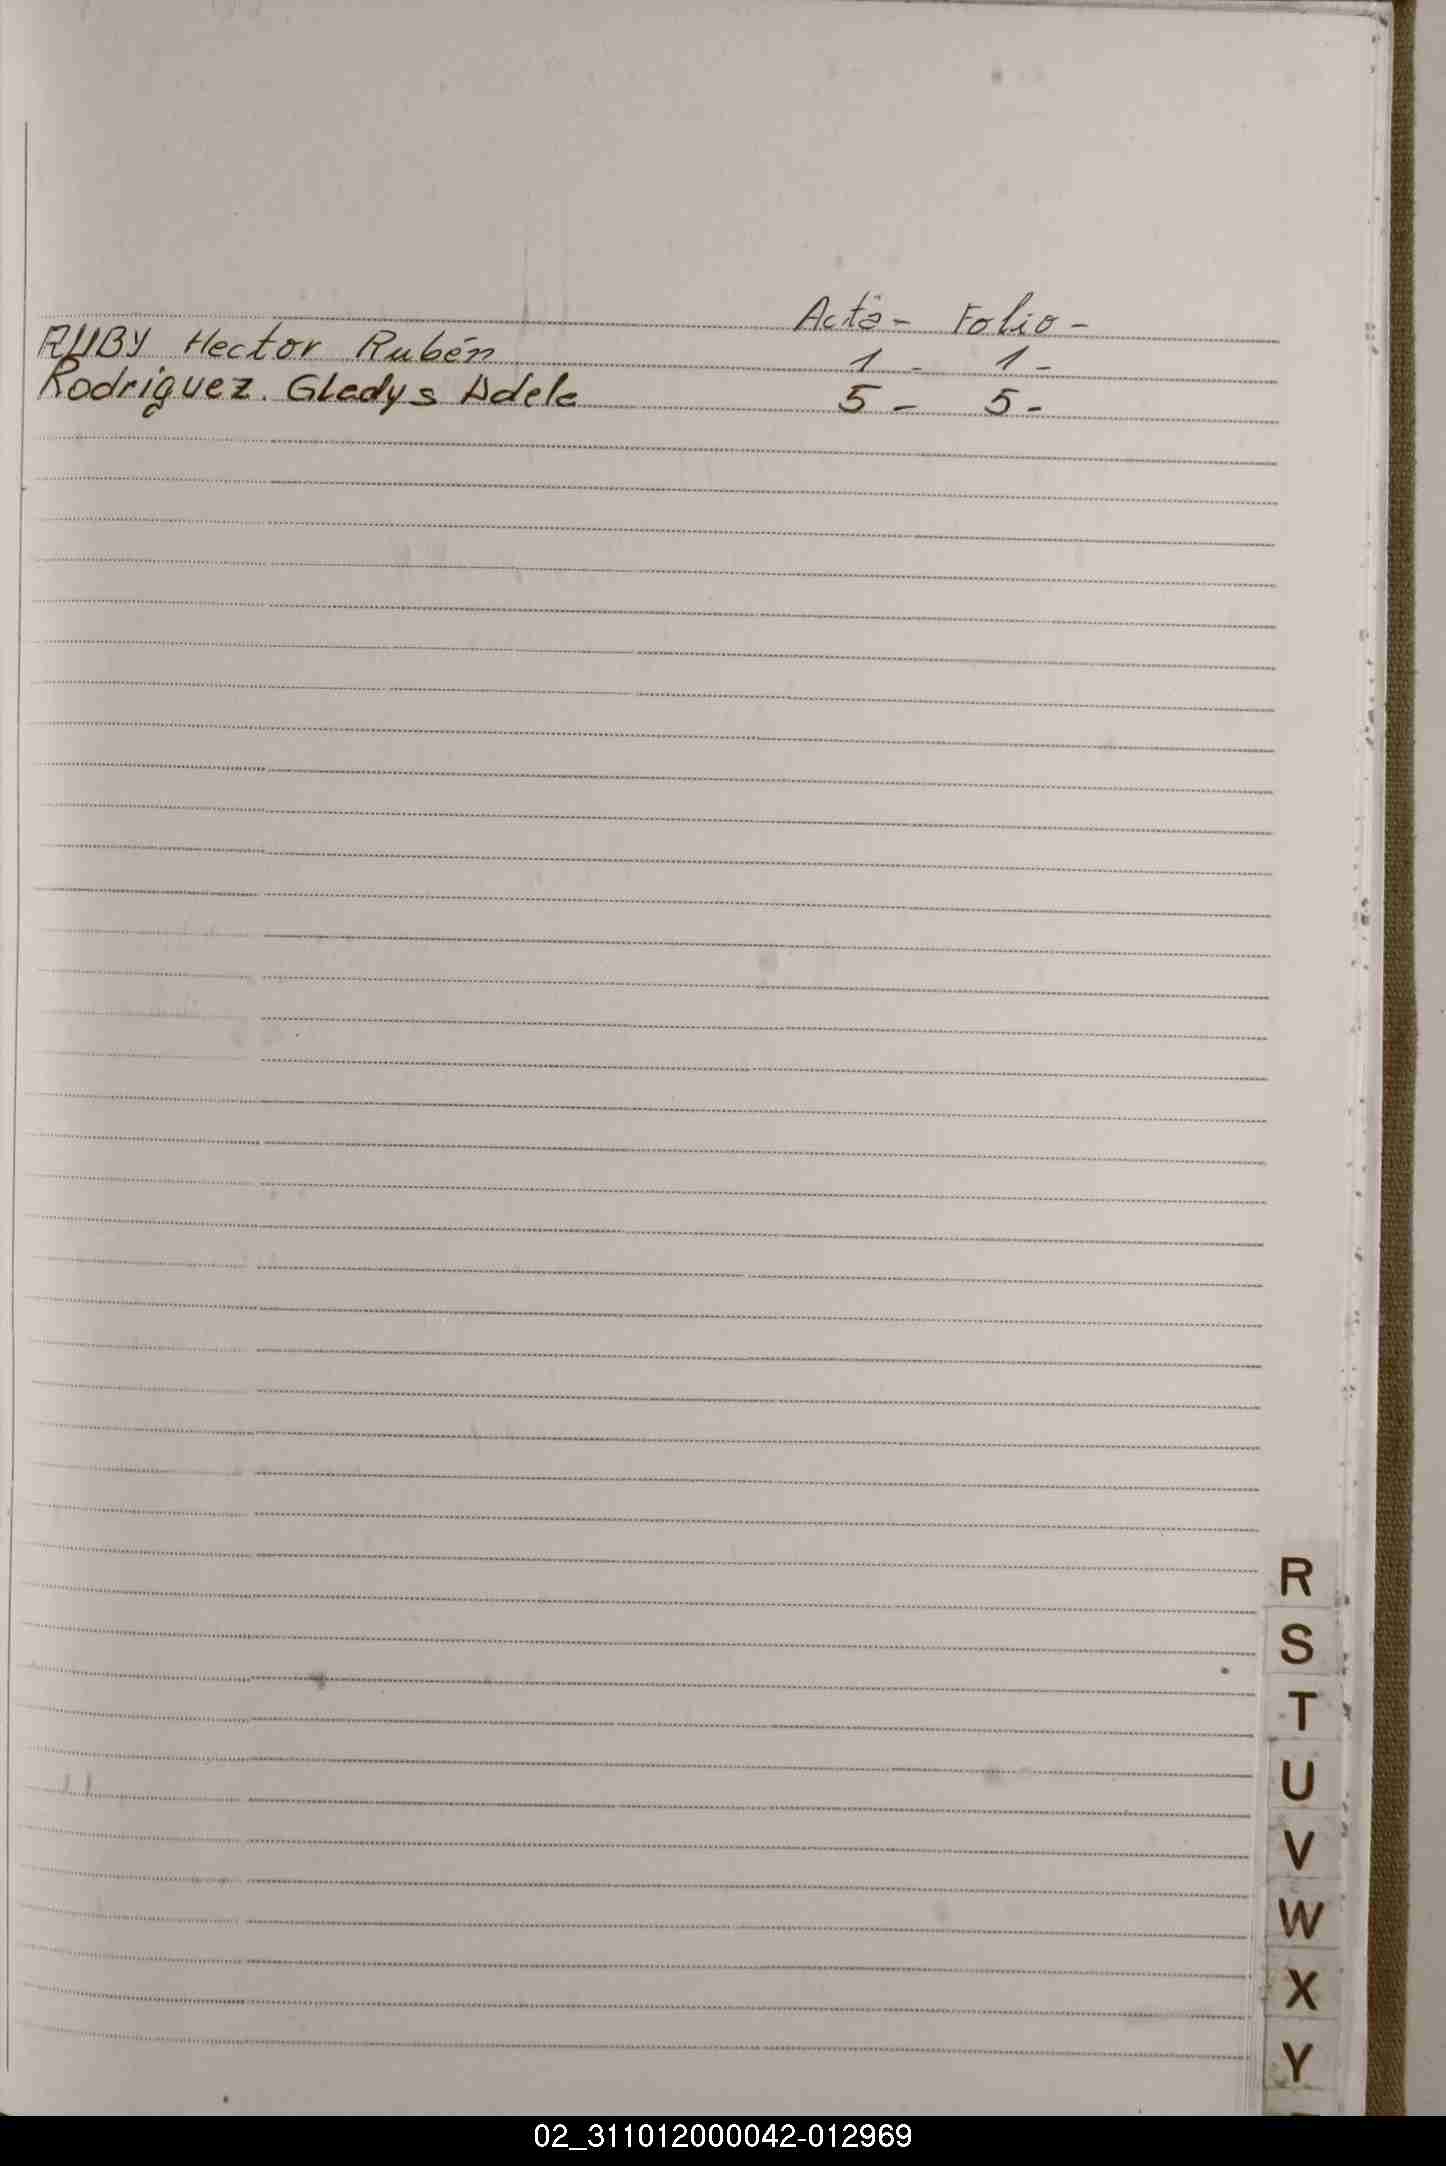 Acta - Folio -
RUBY Hector Rubén 1 - 1 -
Rodriguez. Gladys Adela 5 - 5 -
R
S
T
U
V
W
X
Y
02_311012000042-012969